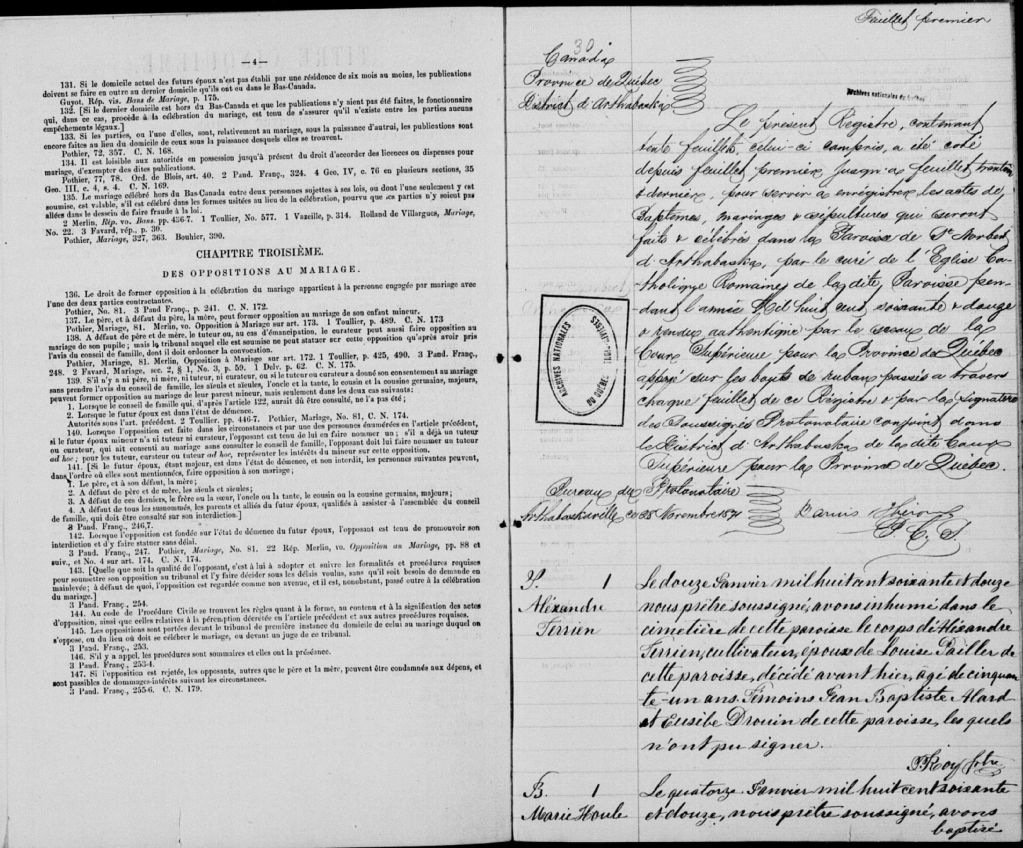 — 4 —
131. Si le domicile actuel des futurs époux n'est pas établi par une résidence de six mois au moins, les publications
doivent se faire en outre au dernier domicile qu'ils ont eu dans le Bas-Canada.
Guyot, Rép. vis. Bans de Mariage, p. 175.
132. [Si le dernier domicile est hors du Bas-Canada et que les publications n'y aient pas été faites, le fonctionnaire
qui, dans ce cas, procède à la célébration du mariage, est tenu de s'assurer qu'il n'existe entre les parties aucuns
empêchements légaux.]
133. Si les parties, ou l'une d'elles, sont, relativement au mariage, sous la puissance d'autrui, les publications sont
encore faites au lieu du domicile de ceux sous la puissance desquels elles se trouvent.
Pothier, 72, 357. C. N. 168.
134. Il est loisible aux autorités en possession jusqu'à présent du droit d'accorder les licences ou dispenses pour
mariage, d'exempter des dites publications.
Pothier, 77, 78. Ord. de Blois, art. 40. 2 Pand. Franç., 324. 4 Geo. IV, c. 76 en plusieurs sections, 35
Geo. III, c. 4, s. 4. C. N. 169.
135. Le mariage célébré hors du Bas-Canada entre deux personnes sujettes à ses lois, ou dont l'une seulement y est
soumise, est valable, s'il est célébré dans les formes usitées au lieu de la célébration, pourvu que ces parties n'y soient pas
allées dans le dessein de faire fraude à la loi.
2 Merlin, Rép. vo. Bans. pp. 436-7. 1 Toullier, No. 577. 1 Vazeille, p. 314. Rolland de Villargues, Mariage,
No. 22. 3 Favard, rép., p. 39.
Pothier, Mariage, 327, 363. Bouhier, 390.
CHAPITRE TROISIÈME.
DES OPPOSITIONS AU MARIAGE.
136. Le droit de former opposition à la célébration du mariage appartient à la personne engagée par mariage avec
l'une des deux parties contractantes.
Pothier, No. 81. 3 Pand Franç., p. 241. C. N. 172.
137. Le père, et à défaut du père, la mère, peut former opposition au mariage de son enfant mineur.
Pothier, Mariage, 81. Merlin, vo. Opposition à Mariage sur art. 173. 1 Toullier, p. 489. C. N. 173
138. A défaut de père et de mère, le tuteur ou, au cas d'émancipation, le curateur peut aussi faire opposition au
mariage de son pupille; mais le tribunal auquel elle est soumise ne peut statuer sur cette opposition qu'après avoir pris
l'avis du conseil de famille, dont il doit ordonner la convocation.
Pothier, Mariage, 81. Merlin, Opposition à Mariage sur art. 172. 1 Toullier, p. 425, 490. 3 Pand. Franç.,
248. 2 Favard, Mariage, sec. 2, § 1, No. 3, p. 59. 1 Delv. p. 62. C. N. 175.
139. S'il n'y a ni père, ni mère, ni tuteur, ni curateur, ou si le tuteur ou curateur a donné son consentement au mariage
sans prendre l'avis du conseil de famille, les aïeuls et aïeules, l'oncle et la tante, le cousin et la cousine germains, majeurs,
peuvent former opposition au mariage de leur parent mineur, mais seulement dans les deux cas suivants:
1. Lorsque le conseil de famille qui, d'après l'article 122, aurait dû être consulté, ne l'a pas été;
2. Lorsque le futur époux est dans l'état de démence.
Autorités sous l'art. précédent. 2 Toullier. pp. 446-7. Pothier, Mariage, No. 81, C. N. 174.
140. Lorsque l'opposition est faite dans les circonstances et par une des personnes énumérées en l'article précédent,
si le futur époux mineur n'a ni tuteur ni curateur, l'opposant est tenu de lui en faire nommer un; s'il a déjà un tuteur
ou curateur, qui ait consenti au mariage sans consulter le conseil de famille, l'opposant doit lui faire nommer un tuteur
ad hoc; pour les tuteur, curateur ou tuteur ad hoc, représenter les intérêts du mineur sur cette opposition.
141. [Si le futur époux, étant majeur, est dans l'état de démence, et non interdit, les personnes suivantes peuvent,
dans l'ordre où elles sont mentionnées, faire opposition à son mariage;
1. Le père, et à son défaut, la mère;
2. A défaut de père et de mère, les aïeuls et aïeules;
3. A défaut de ces derniers, le frère ou la sœur, l'oncle ou la tante, le cousin ou la cousine germains, majeurs;
4. A défaut de tous les susnommés, les parents et alliés du futur époux, qualifiés à assister à l'assemblée du conseil
de famille, qui doit être consulté sur son interdiction.]
3 Pand. Franç., 246,7.
142. Lorsque l'opposition est fondée sur l'état de démence du futur époux, l'opposant est tenu de promouvoir son
interdiction et d'y faire statuer sans délai.
3 Pand. Franç., 247. Pothier, Mariage, No. 81. 22 Rép. Merlin, vo. Opposition au Mariage, pp. 88 et
suiv., et No. 4 sur art. 174. C. N. 174.
143. [Quelle que soit la qualité de l'opposant, c'est à lui à adopter et suivre les formalités et procédures requises
pour soumettre son opposition au tribunal et l'y faire décider sous les délais voulus, sans qu'il soit besoin de demande en
mainlevée; à défaut de quoi, l'opposition est regardée comme non avenue, et il est, nonobstant, passé outre à la célébration
du mariage.]
3 Pand. Franç., 254.
144. Au code de Procédure Civile se trouvent les règles quant à la forme, au contenu et à la signification des actes
d'opposition, ainsi que celles relatives à la péremption décrétée en l'article précédent et aux autres procédures requises.
145. Les oppositions sont portées devant le tribunal de première instance du domicile de celui au mariage duquel on
s'oppose, ou du lieu où doit se célébrer le mariage, ou devant un juge de ce tribunal.
3 Pand. Franç., 253.
146. S'il y a appel, les procédures sont sommaires et elles ont la préséance.
3 Pand. Franç., 253-4.
147. Si l'opposition est rejetée, les opposants, autres que le père et la mère, peuvent être condamnés aux dépens, et
sont passibles de dommages-intérêts suivant les circonstances.
3 Pand. Franç., 255-6. C. N. 179.
Feuillet premier
30
Canada
Province de Québec
District d'Arthabaska
Archives nationales du Québec
Le présent Registre, contenant
trente feuillets, celui-ci compris, a été coté
depuis feuillet premier jusqu'à feuillet trentième
& dernier, pour servir à enregistrer les actes de
Baptêmes, mariages & sépultures qui seront
faits & célébrés dans la Paroisse de St Norbert
d'Arthabaska, par le curé de l'Église Ca-
tholique Romaine de la dite Paroisse pen-
dant l'année Mil huit cent soixante & douze
& rendu authentique par le sceau de la
Cour Supérieure pour la Province de Québec
apposé sur les bouts de ruban passés à travers
chaque feuillet de ce Registre & par la signature
des Soussignés Protonotaire conjoint dans
le District d'Arthabaska de la dite Cour
Supérieure pour la Province de Québec.
ARCHIVES NATIONALES DU QUÉBEC
Bureau du Protonotaire
Arthabaskaville ce 25 Novembre 1871
P. C. S.
S. 1
Aléxandre
Terrien
Le douze Janvier mil huit cent soixante et douze
nous prêtre soussigné, avons inhumé dans le
cimetière de cette paroisse le corps d'Aléxandre
Terrien, cultivateur, époux de Louise Pailler de
cette paroisse, décédé avant hier, agé de cinquan
te-un ans. Témoins Jean Baptiste Alard
et Eusèbe Drouin de cette paroisse, les quels
n'ont pu signer.
P. Roy Ptre
B. 1
Marie Houle
Le quatorze Janvier mil huit cent soixante
et douze, nous prêtre soussigné, avons
baptisé